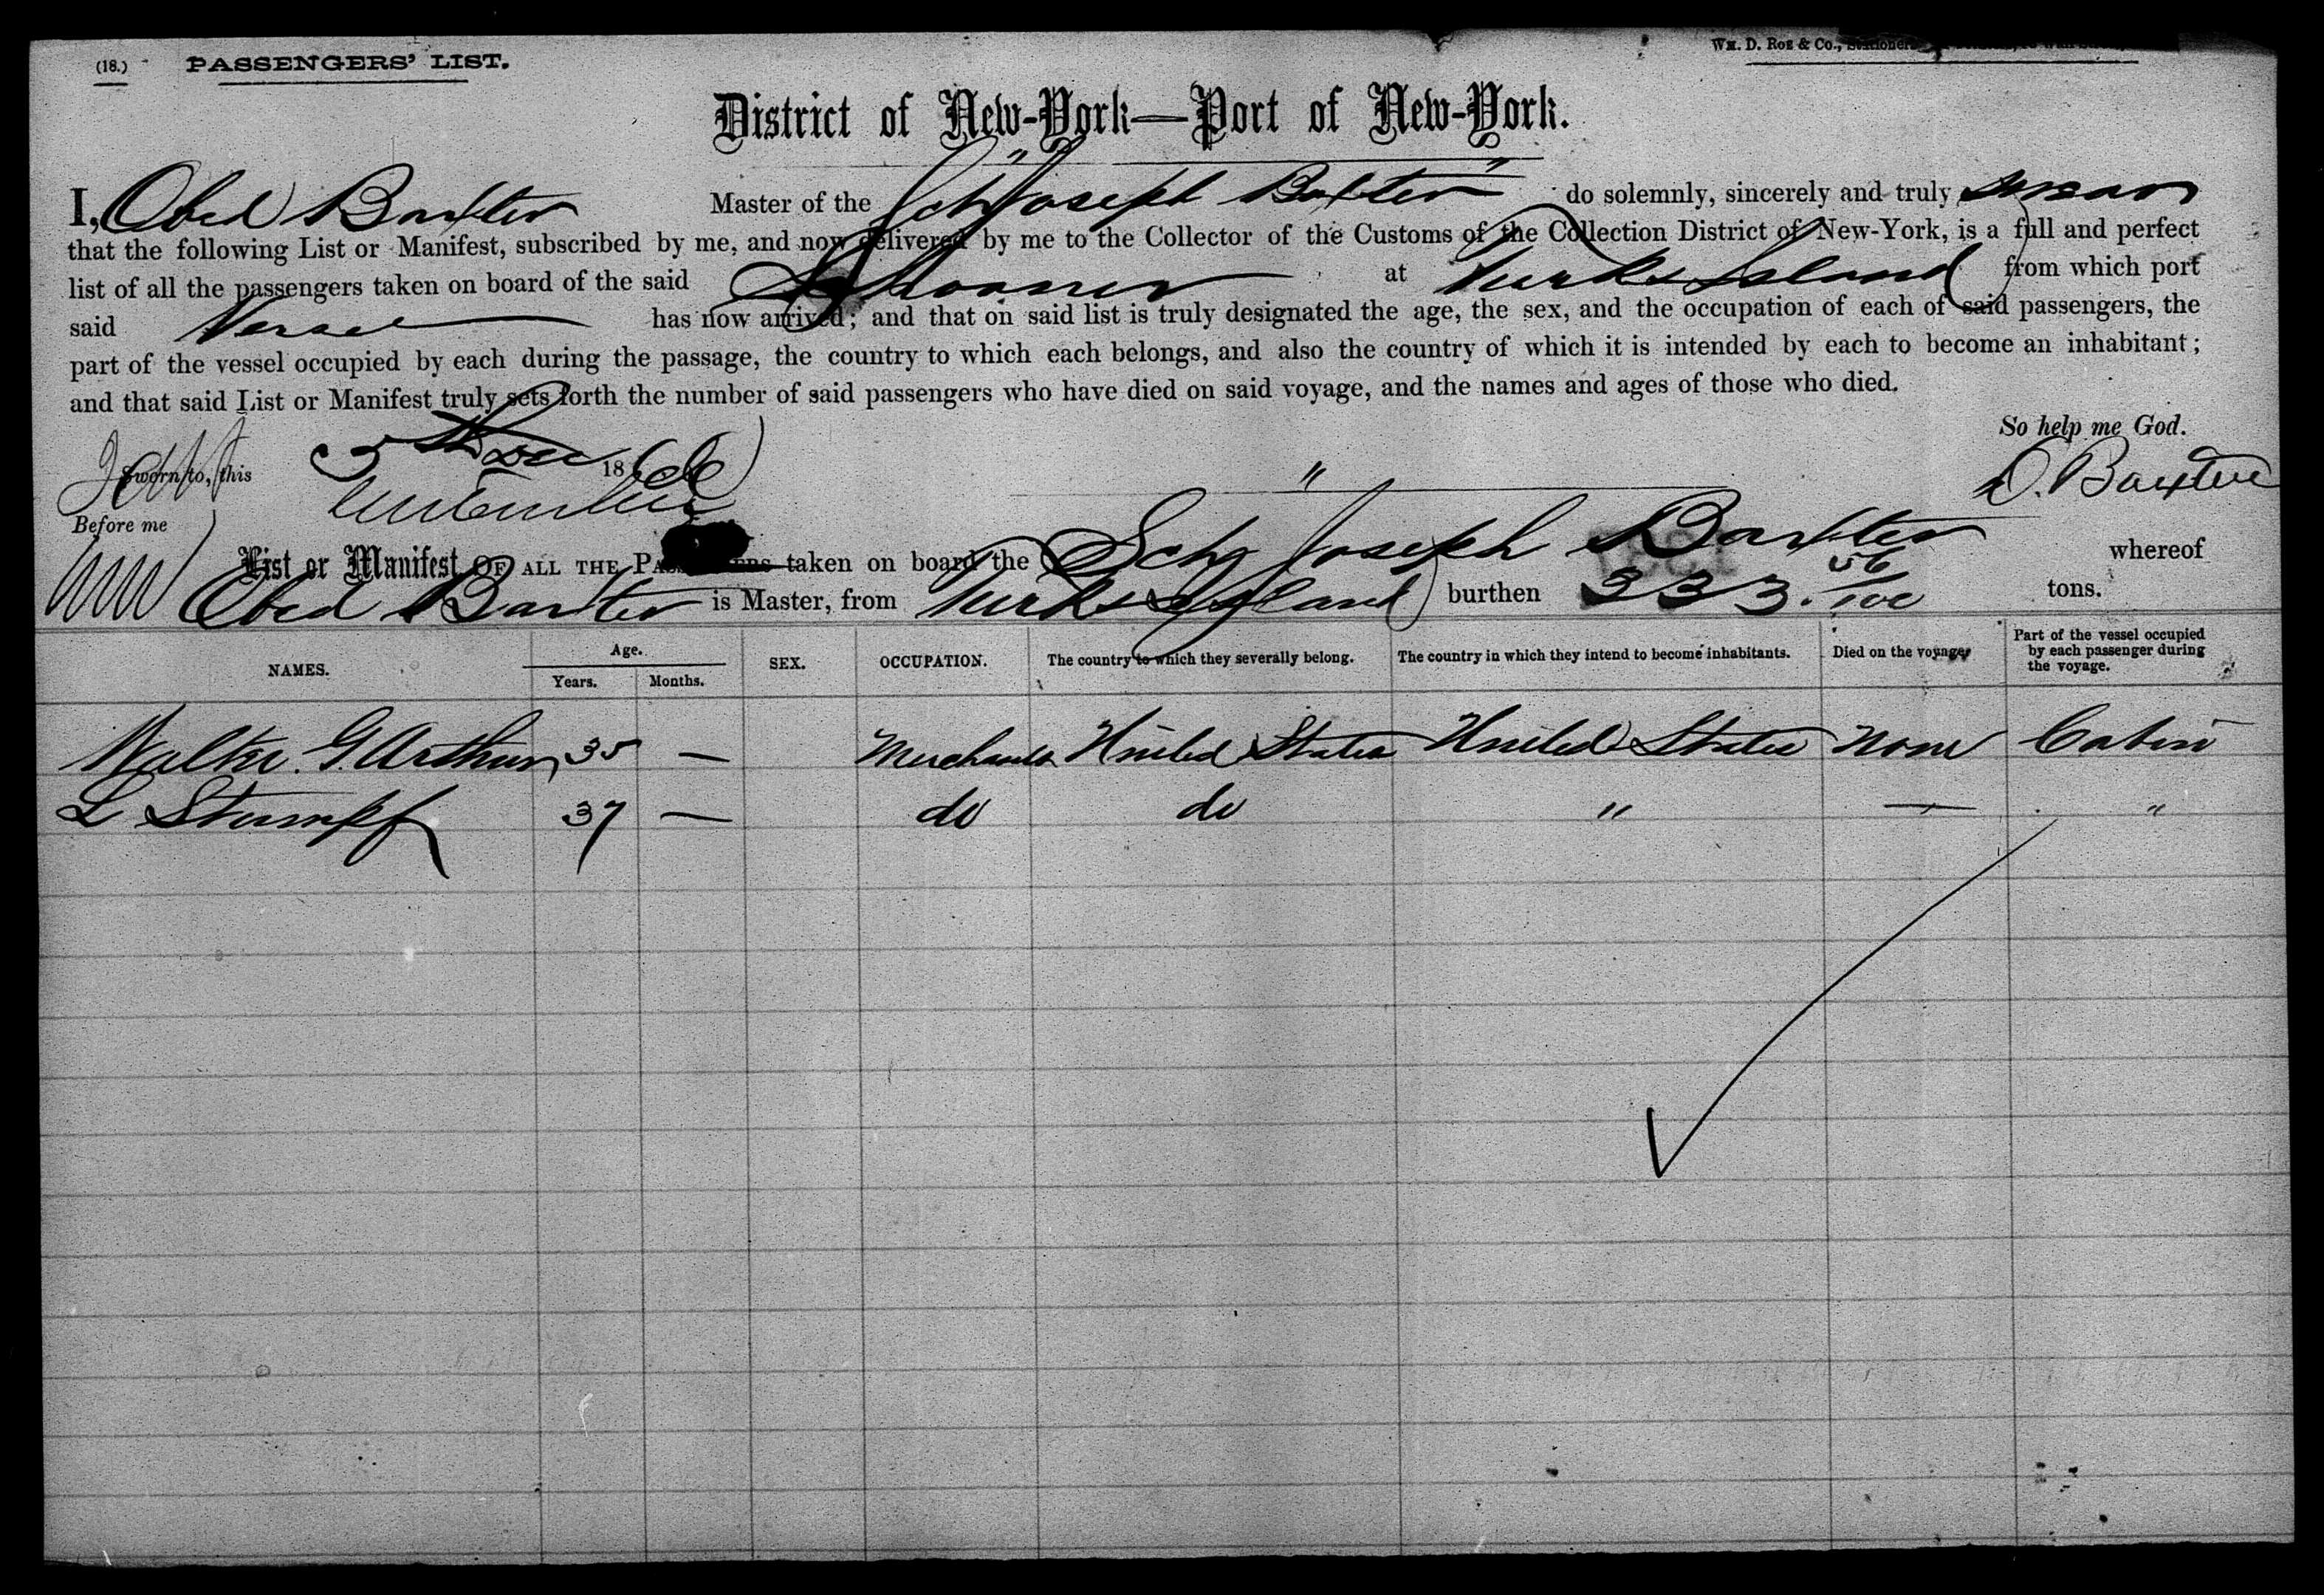 (18.) PASSENGERS' LIST.
WM. D. ROE & Co., Stationers
District of New-York—Port of New-York.
I, Obed Baxter Master of the Sch "Joseph Baxter" do solemnly, sincerely and truly swear
that the following List or Manifest, subscribed by me, and now delivered by me to the Collector of the Customs of the Collection District of New-York, is a full and perfect
list of all the passengers taken on board of the said Schooner at Turks Island from which port
said Vessel has now arrived; and that on said list is truly designated the age, the sex, and the occupation of each of said passengers, the
part of the vessel occupied by each during the passage, the country to which each belongs, and also the country of which it is intended by each to become an inhabitant;
and that said List or Manifest truly sets forth the number of said passengers who have died on said voyage, and the names and ages of those who died.
So help me God.
Sworn to, this 5th Dec 1868
O. Baxter
Before me
List or Manifest OF ALL THE PASSENGERS taken on board the Schr Joseph Baxter whereof
Obed Baxter is Master, from Turks Island burthen 333. 56/100 tons.
NAMES. Age. Years. Months. SEX. OCCUPATION. The country to which they severally belong. The country in which they intend to become inhabitants. Died on the voyage. Part of the vessel occupied by each passenger during the voyage.
Walter. G. Arthur 35 — Merchants United States United States None Cabin
L Stumpf 37 — do do " — "